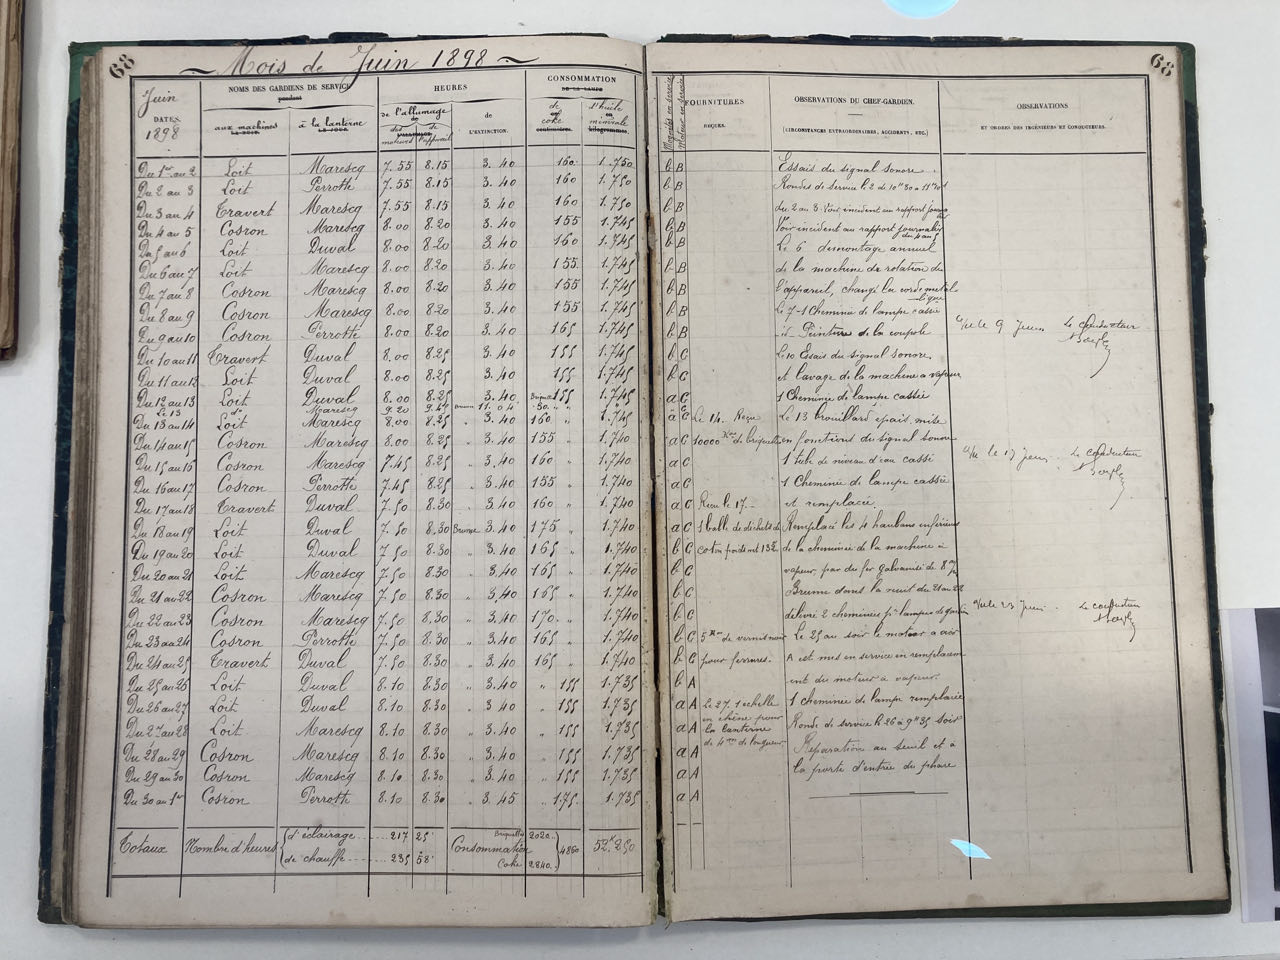 68
Mois de Juin 1898
Juin
DATES
1898
NOMS DES GARDIENS DE SERVICE
pendant
aux machines
LE SOIR.
à la lanterne
LE JOUR.
HEURES
de l'allumage
des moteurs
de l'appareil
de
L'EXTINCTION.
CONSOMMATION
DE LA LAMPE
de coke
d'huile
minérale
kilogrammes.
Du 1er au 2 Loit Marescq 7.55 8.15 3.40 160 1.750
Du 2 au 3 Loit Perroth 7.55 8.15 3.40 160 1.750
Du 3 au 4 Travert Marescq 7.55 8.15 3.40 160 1.750
Du 4 au 5 Cosron Marescq 8.00 8.20 3.40 155 1.745
Du 5 au 6 Loit Duval 8.00 8.20 3.40 160 1.745
Du 6 au 7 Loit Marescq 8.00 8.20 3.40 155 1.745
Du 7 au 8 Cosron Marescq 8.00 8.20 3.40 155 1.745
Du 8 au 9 Cosron Marescq 8.00 8.20 3.40 155 1.745
Du 9 au 10 Cosron Perrotte 8.00 8.20 3.40 165 1.745
Du 10 au 11 Travert Duval 8.00 8.25 3.40 155 1.745
Du 11 au 12 Loit Duval 8.00 8.25 3.40 155 1.745
Du 12 au 13 Loit Duval 8.00 8.25 3.40 155 1.745
Le 13 do Marescq 9.20 9.47 Brume 11.04 Briquettes 30 "
Du 13 au 14 Loit Marescq 8.00 8.25 " 3.40 160 " 1.745
Du 14 au 15 Cosron Marescq 8.00 8.25 " 3.40 155 " 1.740
Du 15 au 16 Cosron Marescq 7.45 8.25 " 3.40 160 " 1.740
Du 16 au 17 Cosron Perrotte 7.45 8.25 " 3.40 155 " 1.740
Du 17 au 18 Travert Duval 7.50 8.30 " 3.40 160 " 1.740
Du 18 au 19 Loit Duval 7.50 8.30 Brume 3.40 175 " 1.740
Du 19 au 20 Loit Duval 7.50 8.30 " 3.40 165 " 1.740
Du 20 au 21 Loit Marescq 7.50 8.30 " 3.40 165 " 1.740
Du 21 au 22 Cosron Marescq 7.50 8.30 " 3.40 165 " 1.740
Du 22 au 23 Cosron Marescq 7.50 8.30 " 3.40 170 " 1.740
Du 23 au 24 Cosron Perrotte 7.50 8.30 " 3.40 165 " 1.740
Du 24 au 25 Travert Duval 7.50 8.30 " 3.40 165 " 1.740
Du 25 au 26 Loit Duval 8.10 8.30 " 3.40 " 155 1.735
Du 26 au 27 Loit Duval 8.10 8.30 " 3.40 " 155 1.735
Du 27 au 28 Loit Marescq 8.10 8.30 " 3.40 " 155 1.735
Du 28 au 29 Cosron Marescq 8.10 8.30 " 3.40 " 155 1.735
Du 29 au 30 Cosron Marescq 8.10 8.30 " 3.40 " 155 1.735
Du 30 au 1er Cosron Perroth 8.10 8.30 " 3.45 " 175 1.735
Totaux Nombre d'heures
d'éclairage 217 25
de chauffe 235 58
Consommation
Briquettes 2020
Coke 2840
4860
52k.250
68
Magnétos en service
Moteur en service
FOURNITURES
REÇUES.
OBSERVATIONS DU CHEF-GARDIEN.
(CIRCONSTANCES EXTRAORDINAIRES, ACCIDENTS, ETC.)
OBSERVATIONS
ET ORDRES DES INGÉNIEURS ET CONDUCTEURS.
b B Essais du signal sonore.
b B Rondes de service le 2 de 10h30 à 11h30
b B du 2 au 3 Voir incident au rapport journ
b B Voir incident au rapport journalier
du 4 au 5
b B Le 6 démontage annuel
b B de la machine de rotation de
b B l'appareil, changé la corde métal
lique
b B Le 7 - 1 Cheminée de lampe cassée
b B id - Peinture de la coupole
Vu le 9 juin Le Conducteur
b C Le 10 Essais du signal sonore
b C et lavage de la machine à vapeur
a C 1 Cheminée de lampe cassée
a C Le 14. Reçu Le 13 brouillard épais, mise
a C 10000 Kos de briquettes en fonctions du signal sonore
a C 1 tube de niveau d'eau cassé
Vu le 17 juin. Le conducteur
a C 1 Cheminée de lampe cassée
a C Reçu le 17. et remplacée.
a C 1 balle de déchets de Remplacé les 4 haubans inférieurs
b C coton de la cheminée de la machine à
b C vapeur par du fer galvanisé de 8 m/m
b C Brume dans la nuit du 21 au 22
b C délivré 2 cheminées pr lampes de gardien
Vu le 23 juin Le conducteur
b C 5 Kos de vernis noir Le 25 au soir le moteur à air
b C pour ferrures. A est mis en service en remplacem
b A ent du moteur à vapeur.
a A Le 27. 1 échelle 1 cheminée de lampe remplacée
a A en chêne pour Ronde de service le 26 à 9h35 soir
la lanterne
a A de 4m de longueur Réparation au seuil et à
a A la porte d'entrée du phare
a A